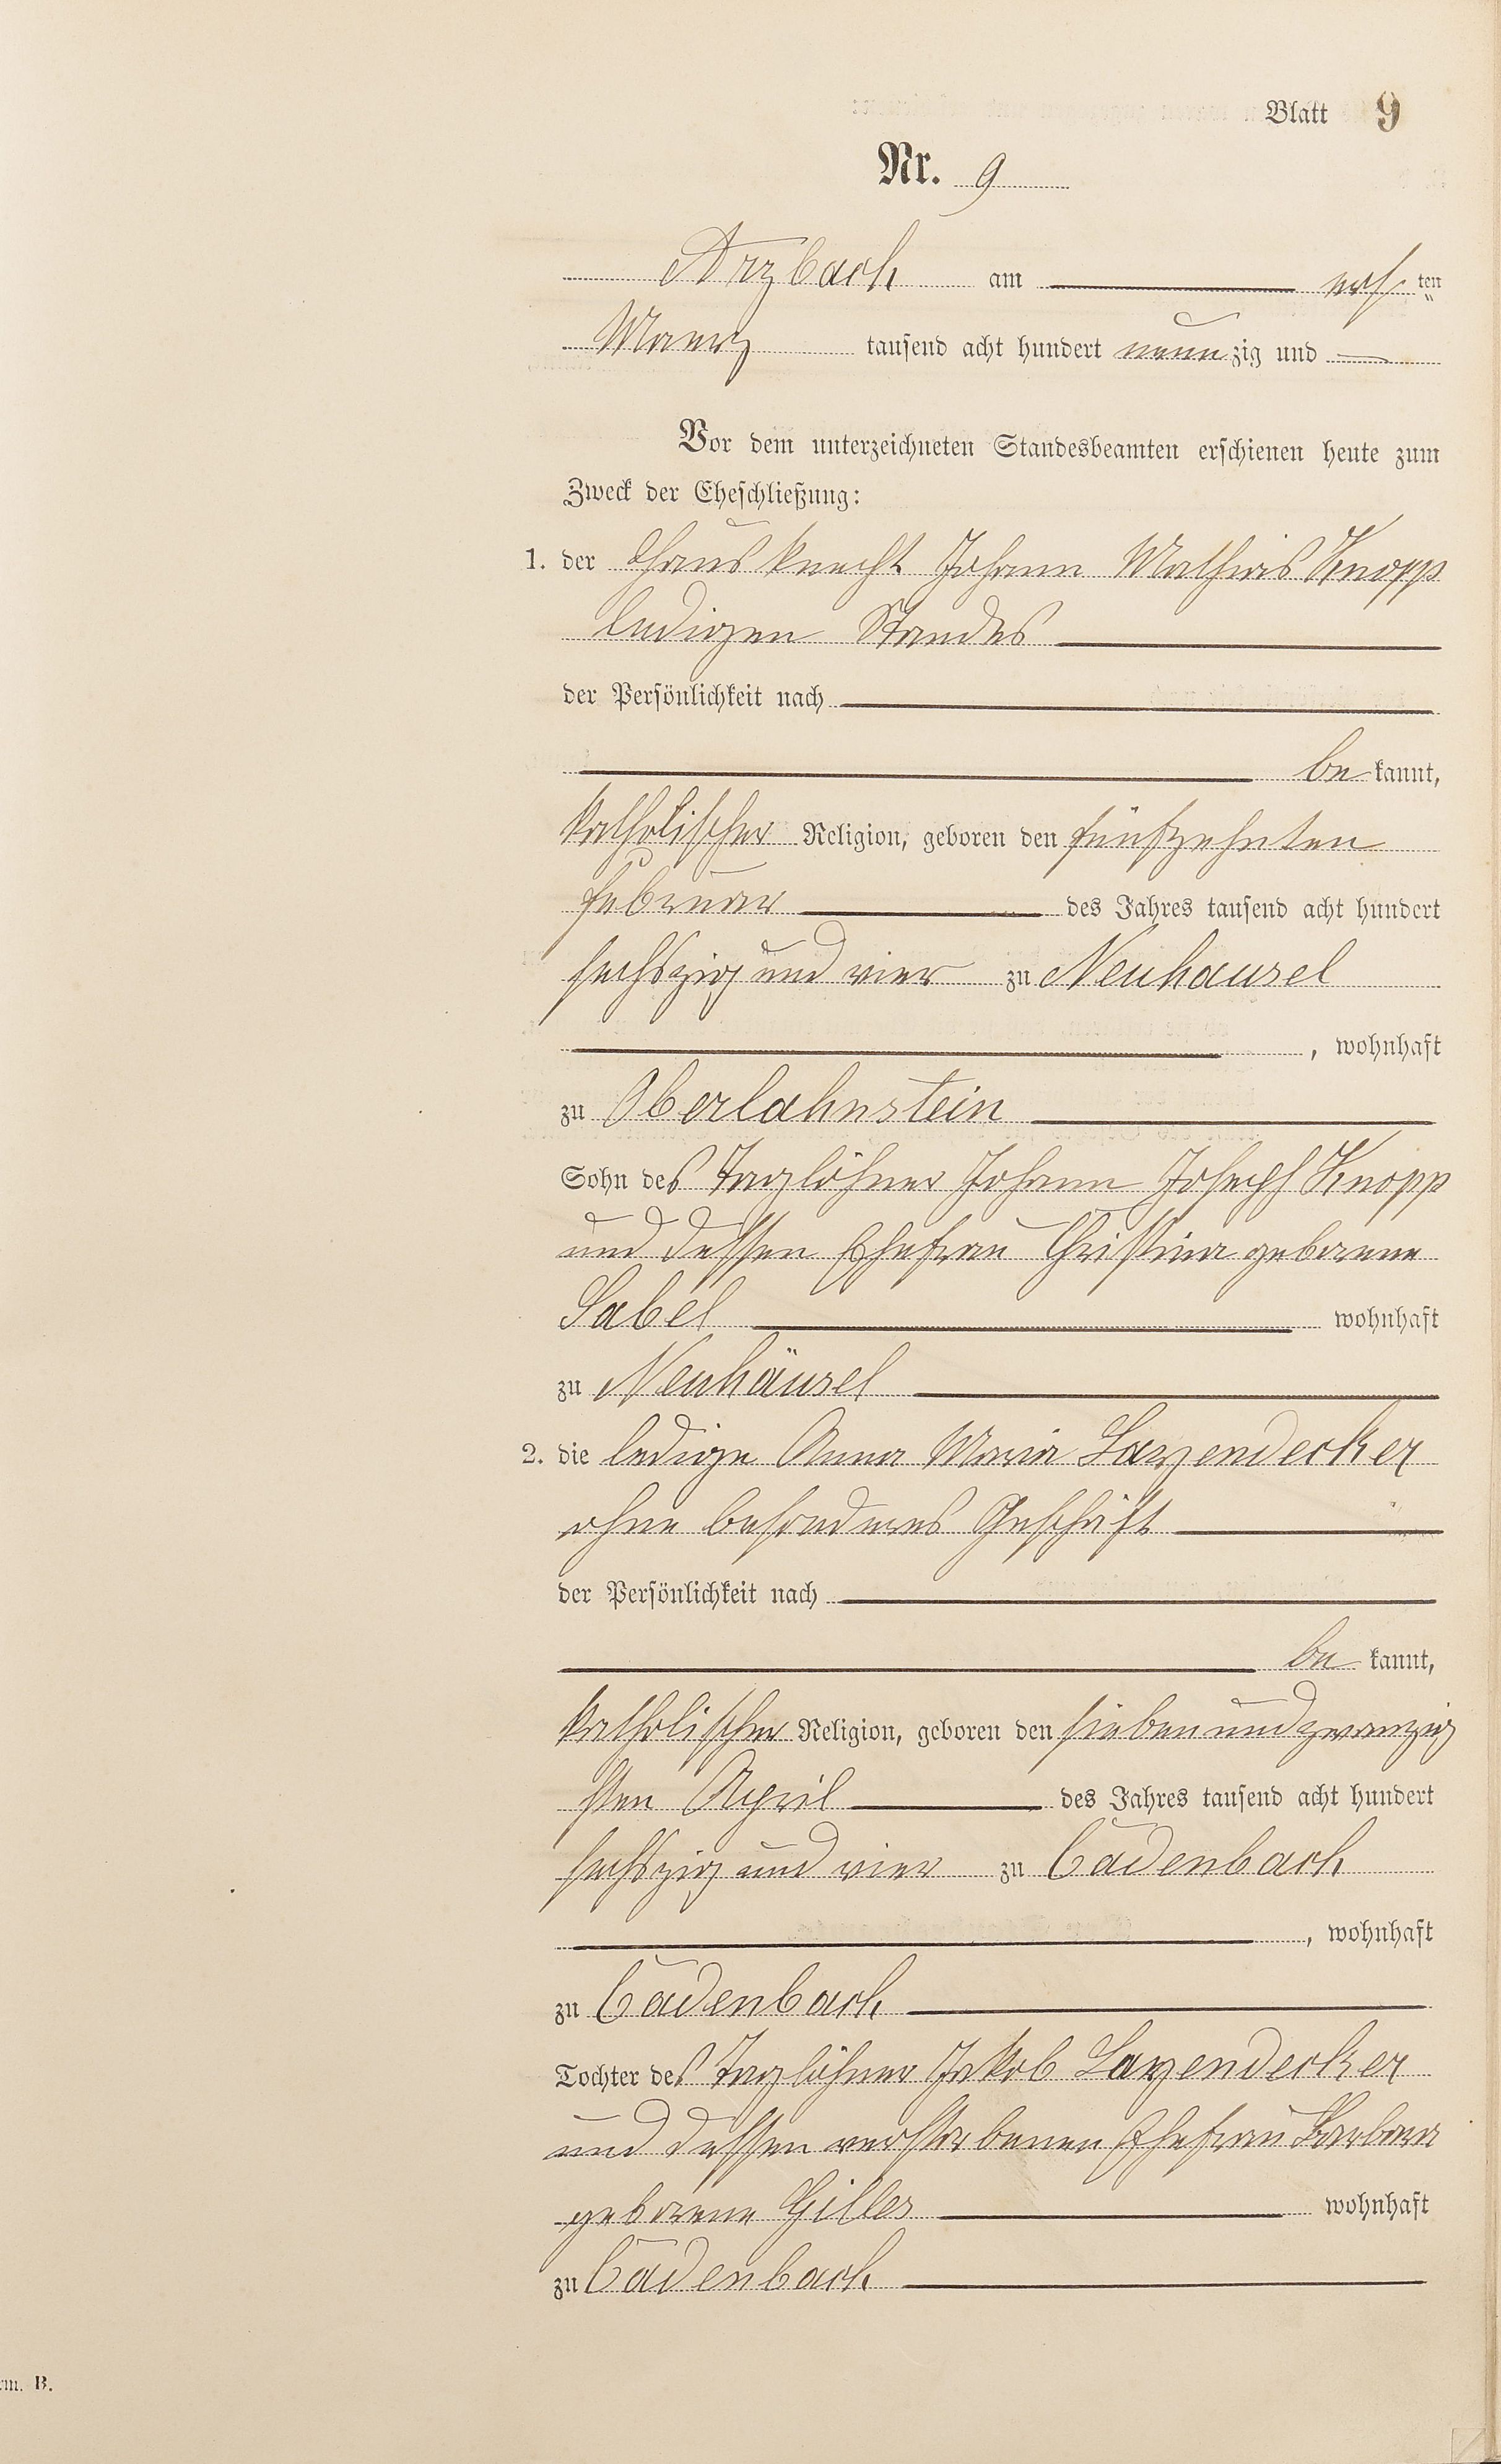 Blatt 9
Nr. 9
Arzbach am ten
Maerz tausend acht hundert neunzig und
Vor dem unterzeichneten Standesbeamten erschienen heute zum
Zweck der Eheschließung:
1. der Hausknecht Johann Mathias Knopp
ledigen Standes
der Persönlichkeit nach
bekannt,
katholischer Religion, geboren den fünfzehnten
Februar des Jahres tausend acht hundert
sechszig und vier zu Neuhausel
, wohnhaft
zu Oberlahnstein
Sohn des Taglöhner Johann Joseph Knopp
und dessen Ehefrau Christina geborene
Sabel wohnhaft
zu Neuhäusel
2. die ledige Anna Maria Layendecker
ohne besonderes Geschäft
der Persönlichkeit nach
bekannt,
katholischer Religion, geboren den siebenundzwanzig
sten April des Jahres tausend acht hundert
sechszig und vier zu Cadenbach
, wohnhaft
zu Cadenbach
Tochter des Taglöhner Jakob Layendecker
und dessen verstorbenen Ehefrau Barbara
geborene Gilles wohnhaft
zu Cadenbach
rm. B.